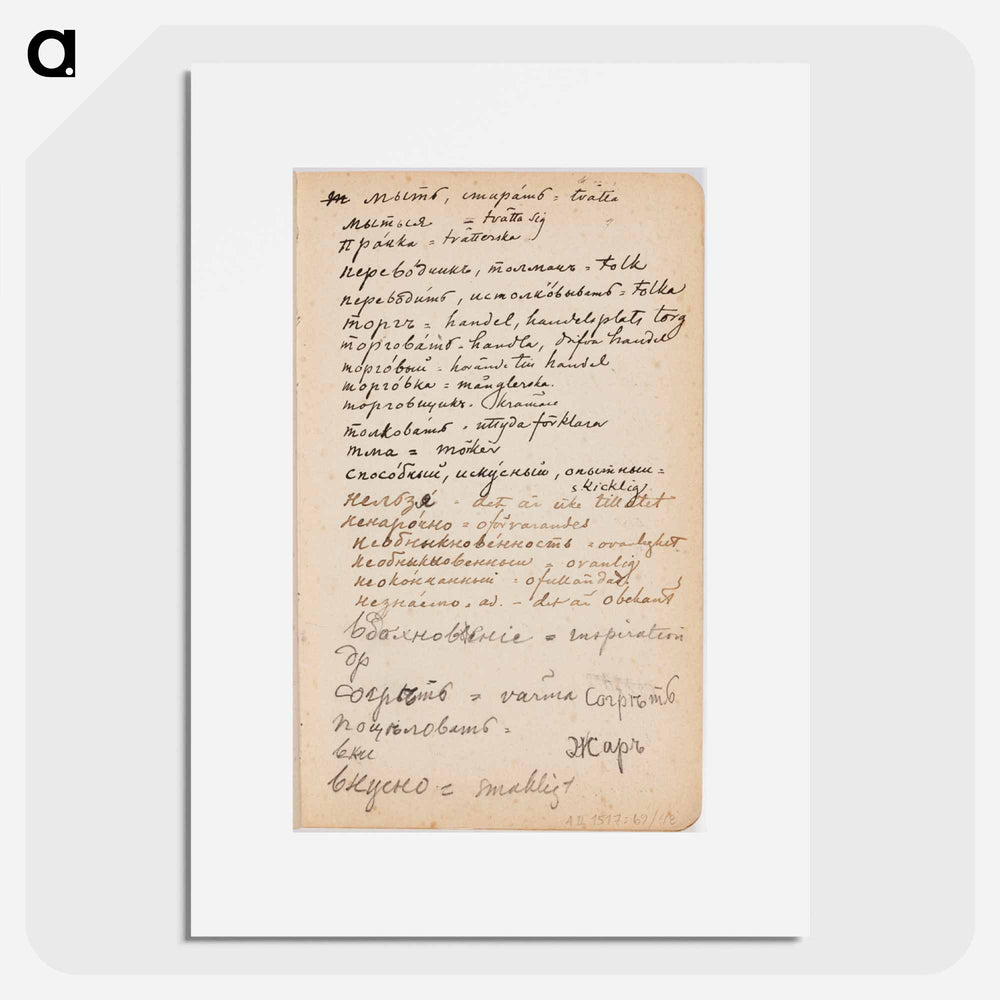 a.
мыть, стирать = tvätta
мыться = tvätta sig
Прачка = tvätterska
переводчикъ, толмачъ = tolk
переводить, истолковывать = tolka
торгъ = handel, handelsplats torg
торговать = handla, drifva handel
торговый = hörande till handel
торговка = månglerska.
торговщикъ. kramare
толковать = uttyda förklara
тма = mörker
способный, искусный, опытный =
skicklig
нельзя - det är icke tillåtet
ненарочно = oförvarandes
необныкновенность = ovanlighet.
необныкновенный = ovanlig
неокончанный = ofulländad.
незнаемо. ad. - det är obekant
вдохновеніе = inspiration
др
согрѣть = värma Согрѣть
поцѣловать =
вки Жаръ
вкусно = smakligt